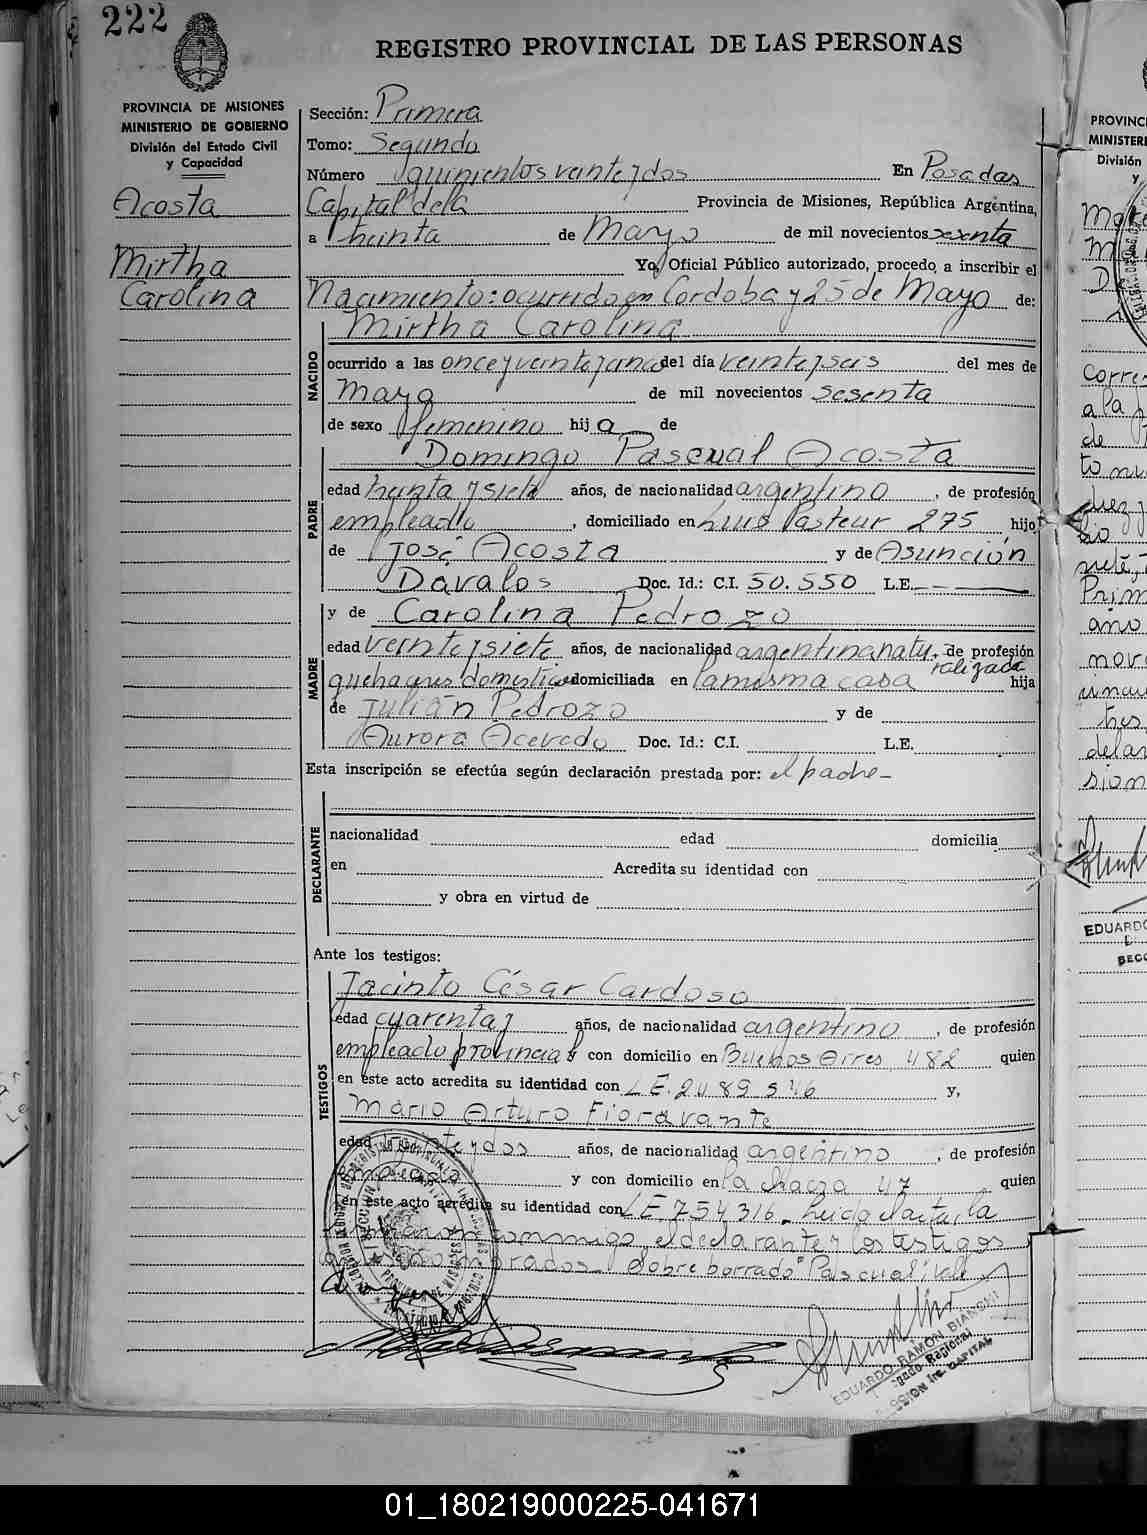 222
REGISTRO PROVINCIAL DE LAS PERSONAS
PROVINCIA DE MISIONES
MINISTERIO DE GOBIERNO
División del Estado Civil
y Capacidad
Acosta
Mirtha
Carolina
Sección: Primera
Tomo: Segundo
Número quinientos veintejdos En Posadas
Capital de la Provincia de Misiones, República Argentina,
a treinta de Mayo de mil novecientos sesenta
Yo, Oficial Público autorizado, procedo a inscribir el
Nacimiento: ocurrido en Cordoba y 25 de Mayo de:
NACIDO
Mirtha Carolina
ocurrido a las once y veinte del día veintejseis del mes de
Mayo de mil novecientos sesenta
de sexo femenino hija de
PADRE
Domingo Pascual Acosta
edad treinta jsiete años, de nacionalidad argentino, de profesión
empleado, domiciliado en Luis Pasteur 275 hijo
de José Acosta y de Asunción
Dávalos Doc. Id.: C.I. 50.550 L.E.
MADRE
y de Carolina Pedrozo
edad veintejsiete años, de nacionalidad argentina natu, de profesión
ralizada
quehaceres domesticos domiciliada en la misma casa hija
de Julián Pedrozo y de
Aurora Acevedo Doc. Id.: C.I. L.E.
Esta inscripción se efectúa según declaración prestada por: el padre-
DECLARANTE
nacionalidad edad domicilia
en Acredita su identidad con
y obra en virtud de
Ante los testigos:
TESTIGOS
Jacinto César Cardoso
edad cuarentaj años, de nacionalidad argentino, de profesión
empleado provincial y con domicilio en Buenos Aires 482 quien
en este acto acredita su identidad con L E. 2489546 y,
Mario Arturo Fioravante
edad años, de nacionalidad argentino, de profesión
empleado y con domicilio en la chacra 47 quien
en este acto acredita su identidad con L E. 754316. Leida el acta, la
conmigo, el declarante y los testigos
Sobre borrado "Pascual" vale
EDUARDO RAMON BIANCHI
Regional
CAPITAL
PROVINC
MINISTER
División
y
Corre
a la
de
to
Prim
año
nov
tres
dela
sion
EDUARDO
01_180219000225-041671